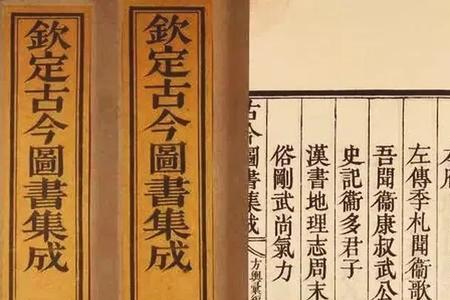 欽定古今圖書集成
欽定古今圖書集成
左傳季札聞衞歌
吾聞衞康叔武公
史記衞多君子
漢書地理志周末
俗剛武尚氣力
古今圖書集成
方輿彙編